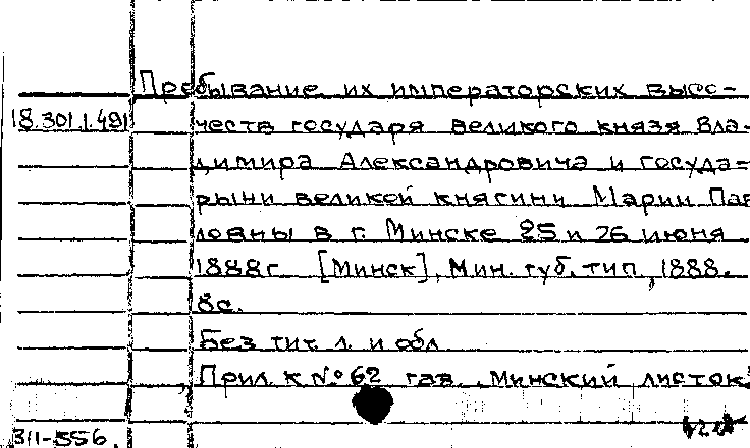 Пребывание их императорских высо-
18.301.1.491
честв государя великого князя Вла-
димира Александровича и госуда-
рыни великой княгини Марии Пав
ловны в г. Минске 25 и 26 июня
1888г. [Минск], Мин. губ. тип, 1888.
8с.
Без тит. л. и обл.
Прил. к № 62 газ. „Минский листок"
311-556.